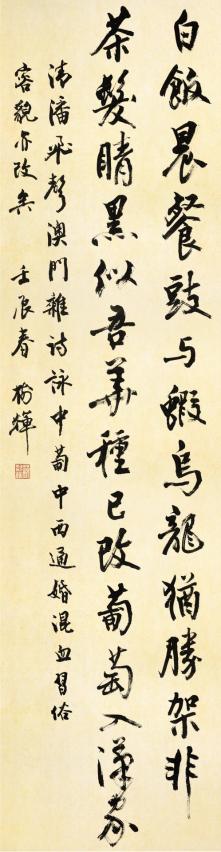 白飯晨餐豉与蝦烏龍猶勝架非
茶髮睛黑似吾華種已改葡萄入漢家
清潘飛聲澳門雜詩詠中葡中西通婚混血習俗
容貌亦改矣 壬辰春 樹輝